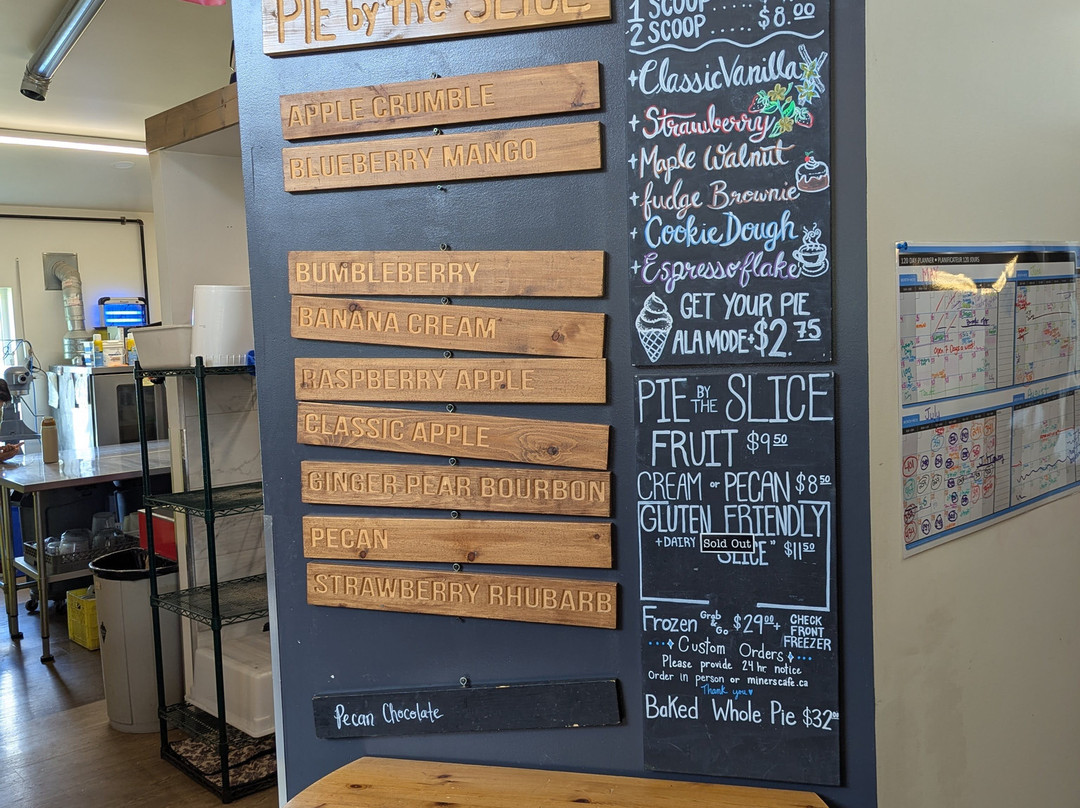 PIE by the SLICE
APPLE CRUMBLE
BLUEBERRY MANGO
BUMBLEBERRY
BANANA CREAM
RASPBERRY APPLE
CLASSIC APPLE
GINGER PEAR BOURBON
PECAN
STRAWBERRY RHUBARB
Pecan Chocolate
1 SCOOP
2 SCOOP ..... $8.00
+Classic Vanilla
+Strawberry
+Maple Walnut
+fudge Brownie
+Cookie Dough
+Espresso flake
GET YOUR PIE
ALAMODE+$2.75
PIE BY THE SLICE
FRUIT $9.50
CREAM or PECAN $8.50
GLUTEN FRIENDLY
+DAIRY Sold Out
SLICE" $11.50
Frozen Grab & Go $29.00+ CHECK FRONT FREEZER
Custom Orders
Please provide 24 hr notice
Order in person or minerscafe.ca
Thank you
Baked Whole Pie $32.00
120 DAY PLANNER • PLANIFICATEUR 120 JOURS
July